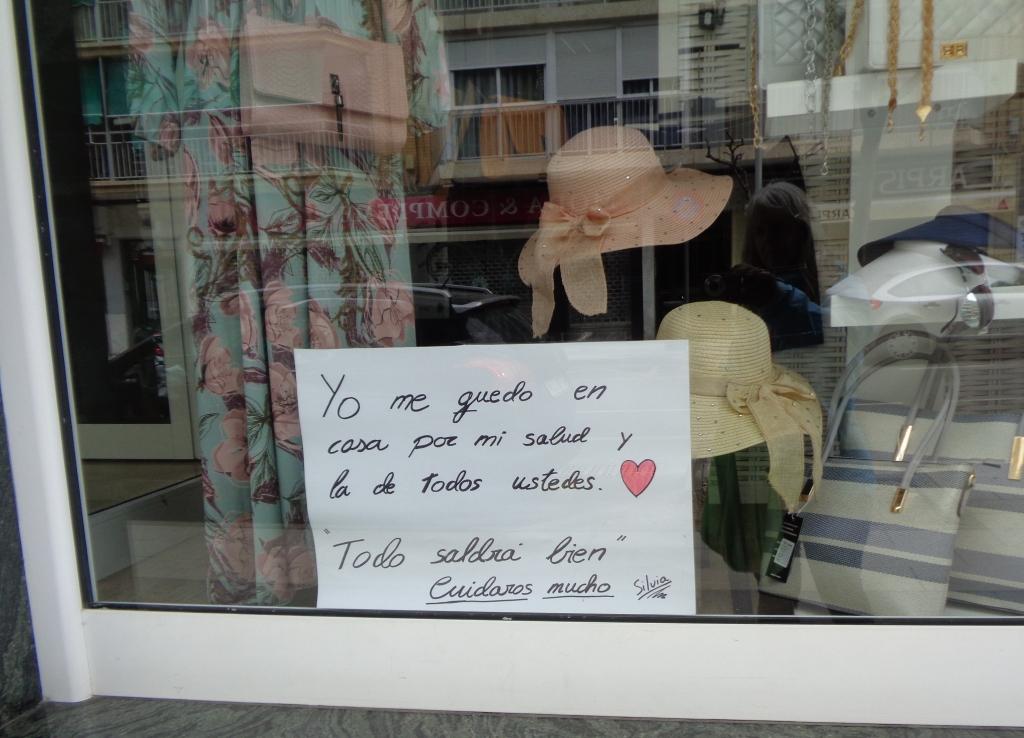 Yo me quedo en
casa por mi salud y
la de todos ustedes.
"Todo saldrá bien"
Cuidaros mucho Silvia
& COMP
ARPIS